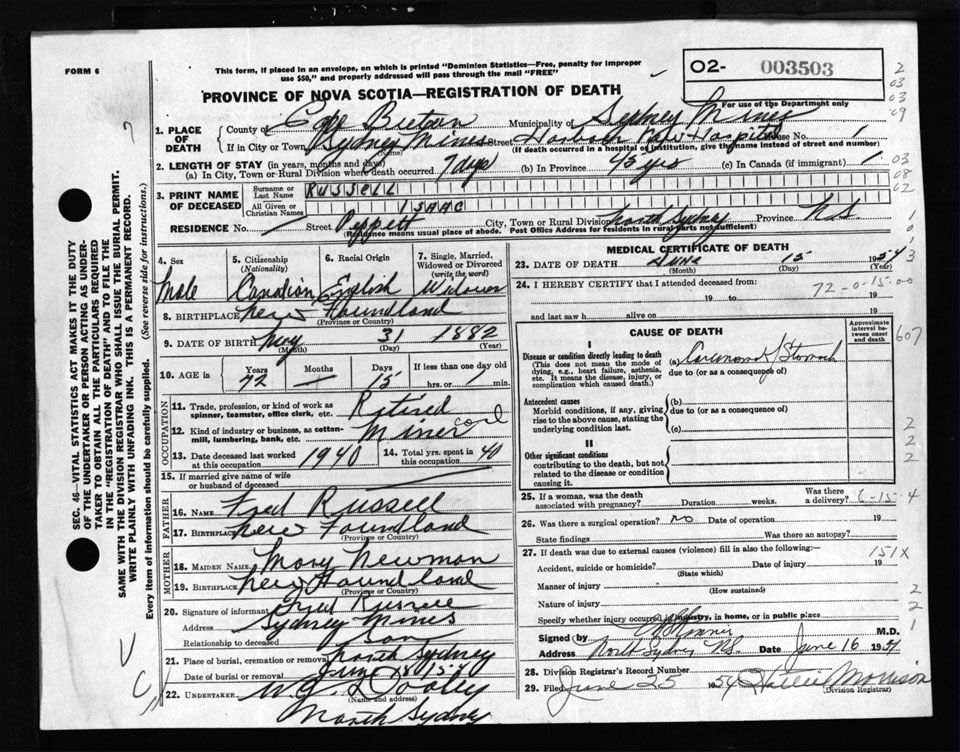 FORM 6
This form, if placed in an envelope, on which is printed "Dominion Statistics—Free, penalty for improper use $50," and properly addressed will pass through the mail "FREE"
O2- 003503
PROVINCE OF NOVA SCOTIA—REGISTRATION OF DEATH
For use of the Department only
1. PLACE OF DEATH County of Cape Breton Municipality of Sydney Mines
If in City or Town Sydney Mines (Name) Street Harbour View Hospital House No.
(If death occurred in a hospital or institution, give the name instead of street and number)
2. LENGTH OF STAY (in years, months and days)
(a) In City, Town or Rural Division where death occurred 7 days (b) In Province 45 yrs (c) In Canada (if immigrant)
3. PRINT NAME OF DECEASED Surname or Last Name RUSSELL
All Given or Christian Names ISAAC
RESIDENCE No. Street Peppett City, Town or Rural Division North Sydney Province N.S.
(Residence means usual place of abode. Post Office Address for residents in rural parts not sufficient)
4. Sex Male
5. Citizenship (Nationality) Canadian
6. Racial Origin English
7. Single, Married, Widowed or Divorced (write the word) Widower
8. BIRTHPLACE New Foundland
(Province or Country)
9. DATE OF BIRTH May (Month) 31 (Day) 1882 (Year)
10. AGE in Years 72 Months Days 15 If less than one day old hrs. or min.
OCCUPATION
11. Trade, profession, or kind of work as spinner, teamster, office clerk, etc. Retired
12. Kind of industry or business, as cotton-mill, lumbering, bank, etc. Miner coal
13. Date deceased last worked at this occupation 1940 14. Total yrs. spent in this occupation 40
15. If married give name of wife or husband of deceased
FATHER
16. NAME Fred Russell
17. BIRTHPLACE New Foundland
(Province or Country)
MOTHER
18. MAIDEN NAME Mary Newman
19. BIRTHPLACE New Foundland
(Province or Country)
20. Signature of informant Fred Russell
Address Sydney Mines
Relationship to deceased son
21. Place of burial, cremation or removal North Sydney
Date of burial or removal June 18/54
22. UNDERTAKER W.J. Dooley
(Name and address)
North Sydney
MEDICAL CERTIFICATE OF DEATH
23. DATE OF DEATH June (Month) 15 (Day) 1954 (Year)
24. I HEREBY CERTIFY that I attended deceased from:
72-0-15-00
19 to 19
and last saw h alive on 19
CAUSE OF DEATH
Approximate interval between onset and death
607
I
Disease or condition directly leading to death (a) Carcinoma of Stomach
(This does not mean the mode of dying, e.g., heart failure, asthenia, etc. It means the disease, injury, or complication which caused death.)
due to (or as a consequence of)
Antecedent causes (b)
Morbid conditions, if any, giving rise to the above cause, stating the underlying condition last.
due to (or as a consequence of)
(c)
II
Other significant conditions contributing to the death, but not related to the disease or condition causing it
25. If a woman, was the death associated with pregnancy? Duration weeks. Was there a delivery?
6-15-4
26. Was there a surgical operation? no Date of operation 19
State findings Was there an autopsy?
27. If death was due to external causes (violence) fill in also the following:—
151X
Accident, suicide or homicide? Date of injury 19
(State which)
Manner of injury
(How sustained)
Nature of injury
Specify whether injury occurred in industry, in home, or in public place
Signed by M.D.
Address North Sydney N.S. Date June 16 1954
28. Division Registrar's Record Number
29. Filed June 25 1954 Hallie Morrison
(Division Registrar)
SEC. 46—VITAL STATISTICS ACT MAKES IT THE DUTY OF THE UNDERTAKER OR PERSON ACTING AS UNDERTAKER TO OBTAIN ALL THE PARTICULARS REQUIRED IN THE "REGISTRATION OF DEATH" AND TO FILE THE SAME WITH THE DIVISION REGISTRAR WHO SHALL ISSUE THE BURIAL PERMIT.
WRITE PLAINLY WITH UNFADING INK. THIS IS A PERMANENT RECORD.
Every item of information should be carefully supplied. (See reverse side for instructions.)